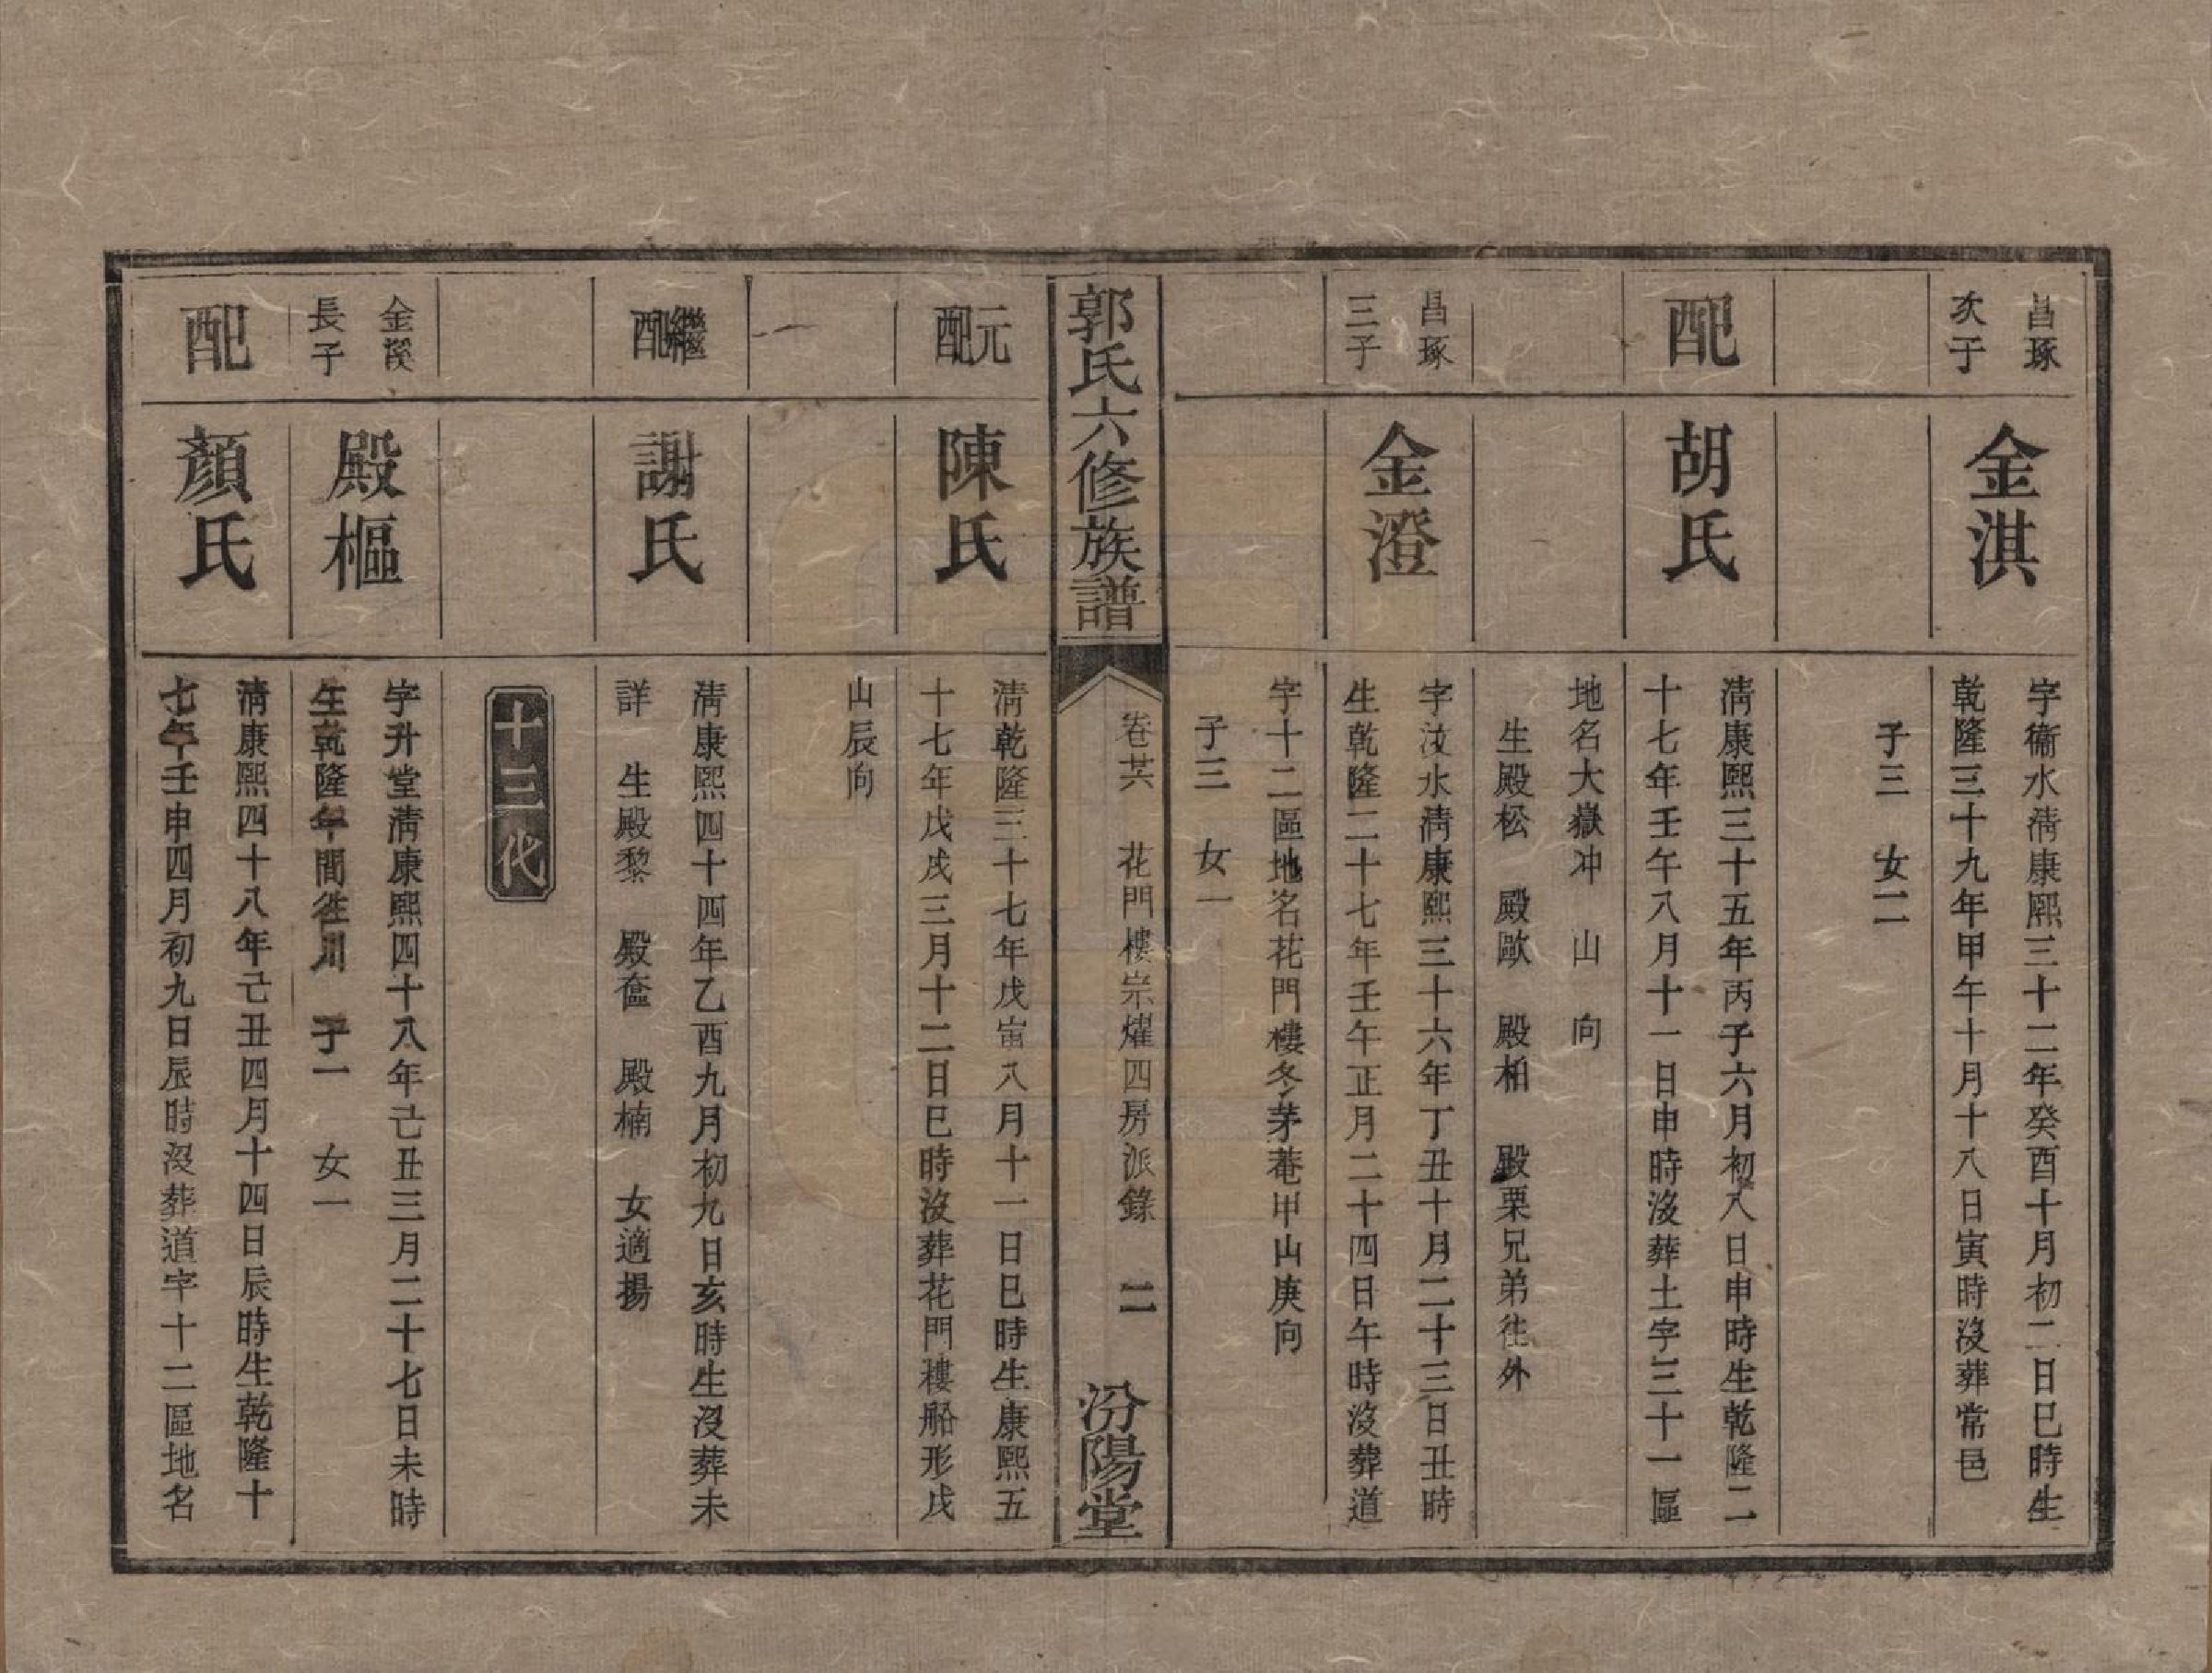 昌琢
次子
金淇
字衞水淸康熙三十二年癸酉十月初二日巳時生
乾隆三十九年甲午十月十八日寅時沒葬常邑
子三　女二
配
胡氏
淸康熙三十五年丙子六月初八日申時生乾隆二
十七年壬午八月十一日申時沒葬土字三十一區
地名大嶽冲　山　向
生殿松　殿歐　殿柏　殿栗兄弟徃外
昌琢
三子
金澄
字汶水淸康熙三十六年丁丑十月二十三日丑時
生乾隆二十七年壬午正月二十四日午時沒葬道
字十二區地名花門樓冬茅菴甲山庚向
子三　女一
郭氏六修族譜
卷廿六　花門樓崇燿四房派錄　二
汾陽堂
元配
陳氏
淸乾隆三十七年戊寅八月十一日巳時生康熙五
十七年戊戌三月十二日巳時沒葬花門樓船形戌
山辰向
繼配
謝氏
淸康熙四十四年乙酉九月初九日亥時生沒葬未
詳　生殿黎　殿　殿楠　女適揚
十三代
金溪
長子
殿樞
字升堂淸康熙四十八年己丑三月二十七日未時
生乾隆年間徃川　子一　女一
配
顏氏
淸康熙四十八年己丑四月十四日辰時生乾隆十
七年壬申四月初九日辰時沒葬道字十二區地名